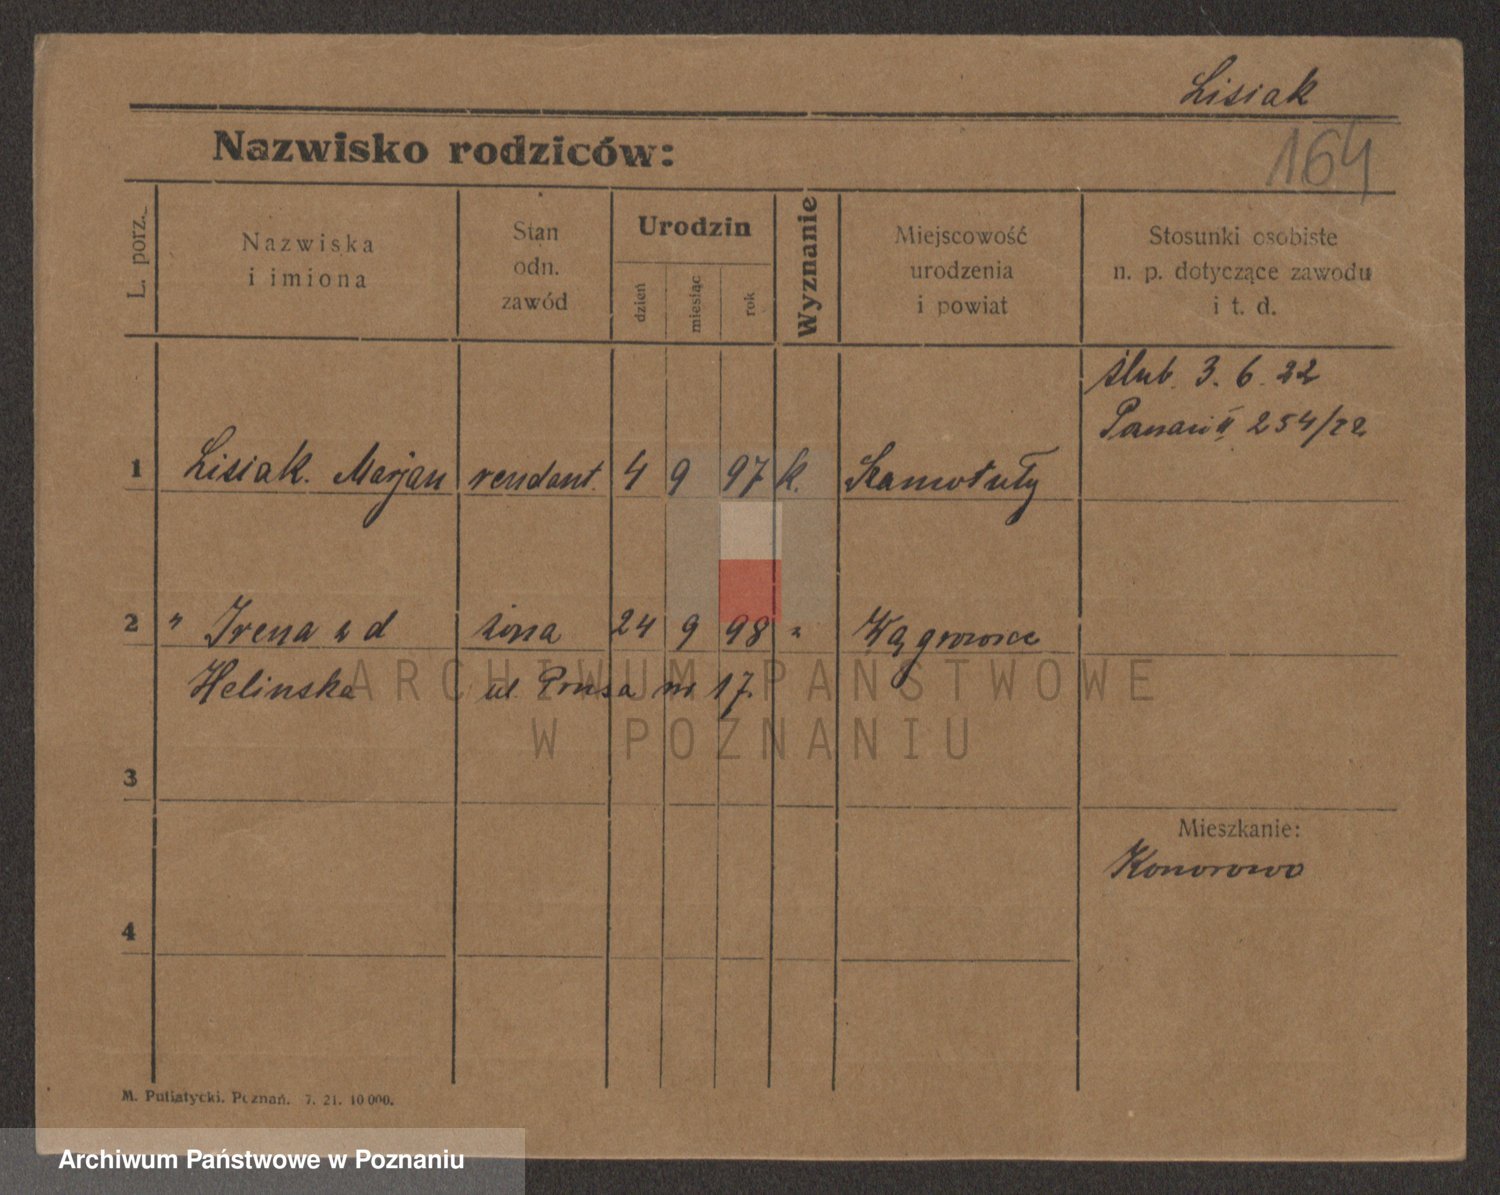 Lisiak
Nazwisko rodziców:
164
L. porz.
Nazwiska
i imiona
Stan
odn.
zawód
Urodzin
dzień
miesiąc
rok
Wyznanie
Miejscowość
urodzenia
i powiat
Stosunki osobiste
n. p. dotyczące zawodu
i t. d.
ślub. 3. 6. 22
II 254/22
1 Lisiak. Marjan rendant. 4 9 97 k. Szamotuły
2 " Irena z d żona 24 9 98 " Wągrowiec
Helinska ul. Prusa nr 17.
ARCHIWUM PAŃSTWOWE
W POZNANIU
3
Mieszkanie:
Komorowo
4
M. Putiatycki. Poznań. 7. 21. 10 000.
Archiwum Państwowe w Poznaniu